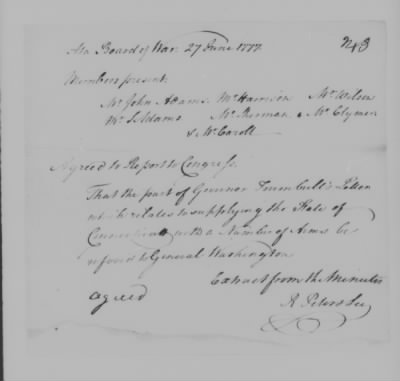 At a Board of War 27 June 1777. 243
Members present.
Mr John Adams Mr Harrison Mr Wilson
Mr S. Adams Mr Sherman & Mr Clymer
& Mr Caroll
Agreed to Report to Congress.
That the part of Governor Trumbull's Letter
which relates to supplying the State of
Connecticut with a Number of Arms be
referred to General Washington
Extract from the Minutes
agreed R. Peters Secy